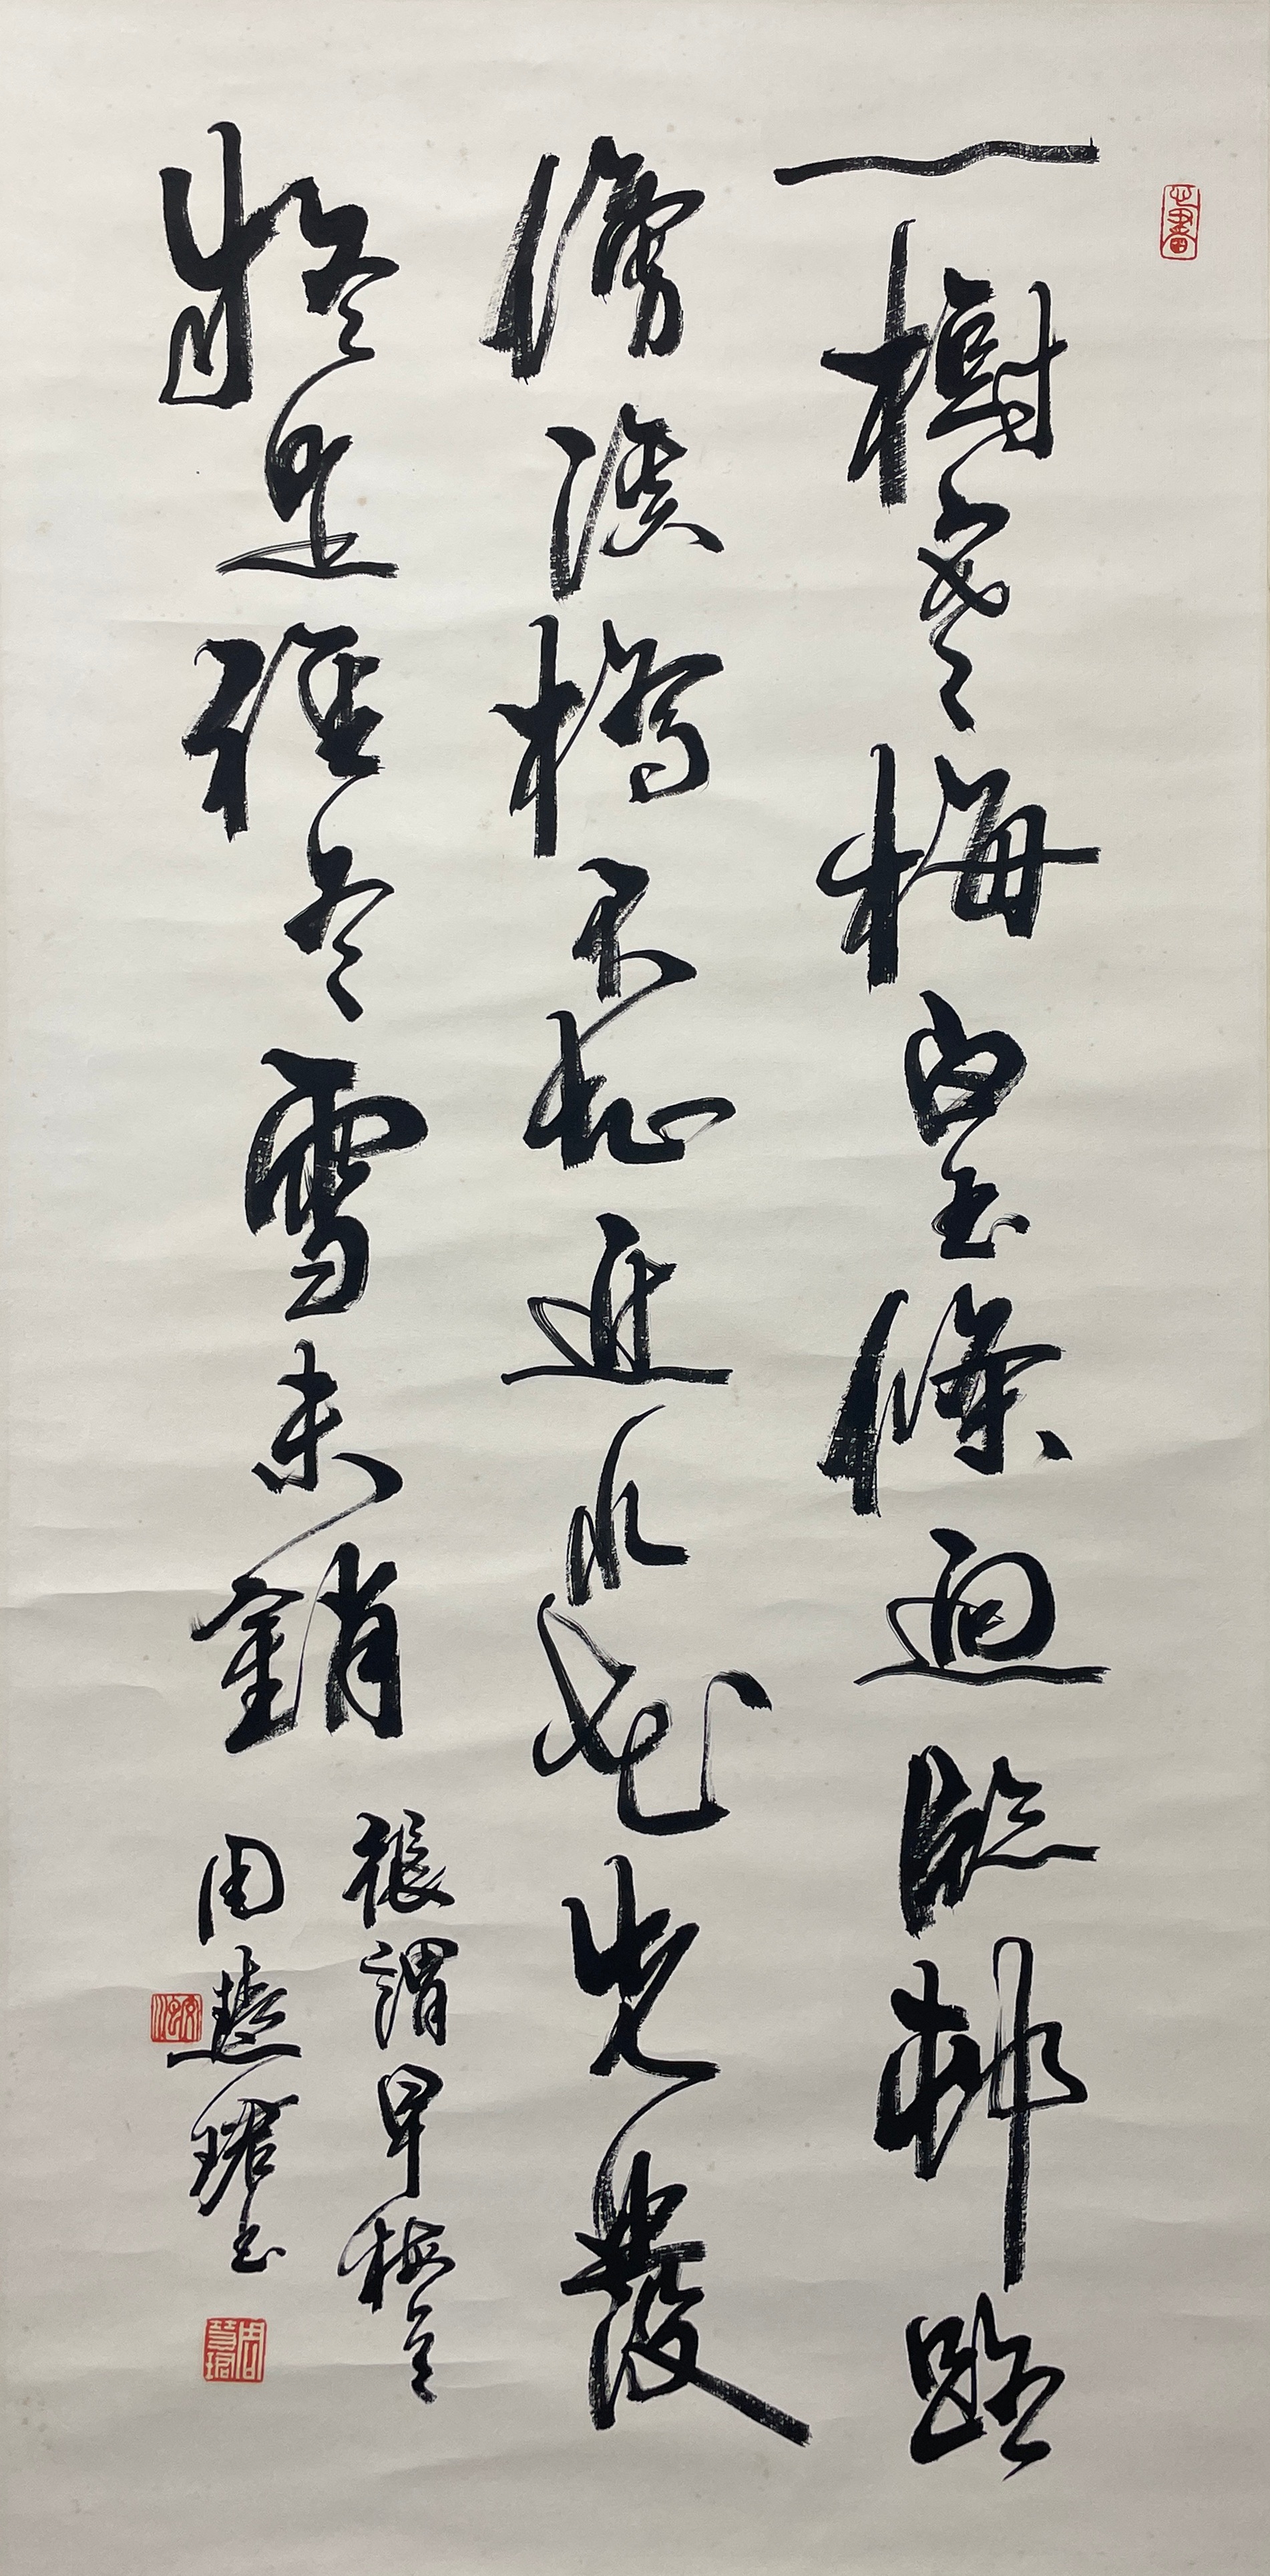 一樹寒梅白玉條迥臨邨路
傍溪橋不知近水花先發
疑是經冬雪未銷
張謂早梅
周慧珺書
周慧珺